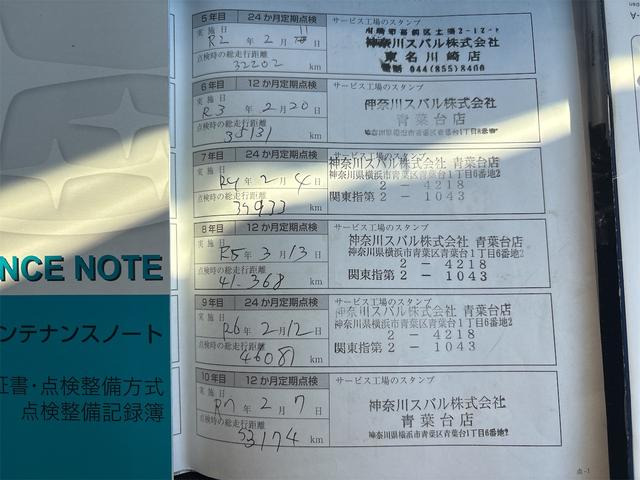 NCE NOTE
ンテナンスノート
証書・点検整備方式
点検整備記録簿
5年目 24か月定期点検
サービス工場のスタンプ
実施日 R2年2月11日
神奈川スバル株式会社
東名川崎店
電話 044(855)8400
点検時の総走行距離
32202 km
6年目 12か月定期点検
サービス工場のスタンプ
実施日 R3年2月20日
神奈川スバル株式会社
青葉台店
点検時の総走行距離
35131 km
7年目 24か月定期点検
サービス工場のスタンプ
実施日 R4年2月4日
神奈川スバル株式会社 青葉台店
神奈川県横浜市青葉区青葉台1丁目6番地2
2-4218
関東指第2-1043
点検時の総走行距離
37933 km
8年目 12か月定期点検
サービス工場のスタンプ
実施日 R5年3月13日
神奈川スバル株式会社 青葉台店
神奈川県横浜市青葉区青葉台1丁目6番地2
2-4218
関東指第2-1043
点検時の総走行距離
41.368 km
9年目 24か月定期点検
サービス工場のスタンプ
実施日 R6年2月12日
神奈川スバル株式会社 青葉台店
神奈川県横浜市青葉区青葉台1丁目6番地2
2-4218
関東指第2-1043
点検時の総走行距離
46087 km
10年目 12か月定期点検
サービス工場のスタンプ
実施日 R7年2月7日
神奈川スバル株式会社
青葉台店
神奈川県横浜市青葉区青葉台1丁目6番地2
点検時の総走行距離
53174 km